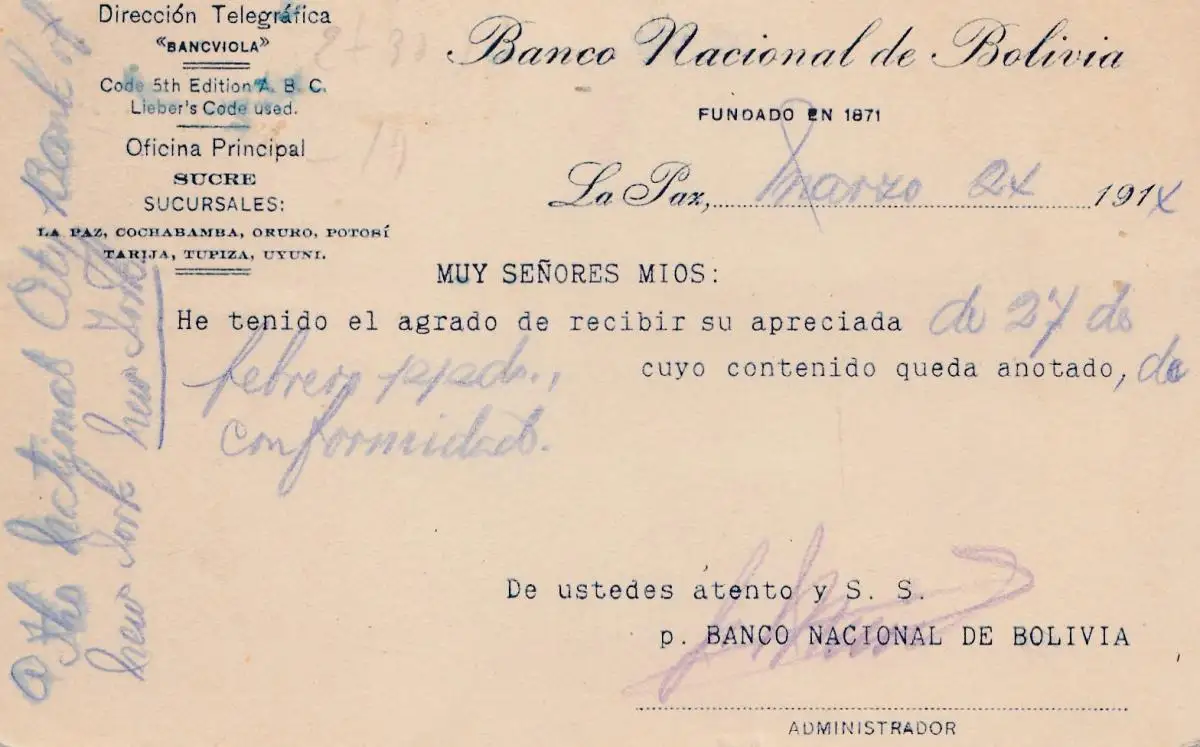 Dirección Telegráfica
«BANCVIOLA»
Code 5th Edition A. B. C.
Lieber's Code used.
Oficina Principal
SUCRE
SUCURSALES:
LA PAZ, COCHABAMBA, ORURO, POTOSÍ
TARIJA, TUPIZA, UYUNI.
Banco Nacional de Bolivia
FUNDADO EN 1871
La Paz, Marzo 24 1914
MUY SEÑORES MIOS:
He tenido el agrado de recibir su apreciada de 27 de
febrero ppdo., cuyo contenido queda anotado, de
conformidad.
De ustedes atento y S. S.
p. BANCO NACIONAL DE BOLIVIA
ADMINISTRADOR
a The National City Bank of
New York
New York